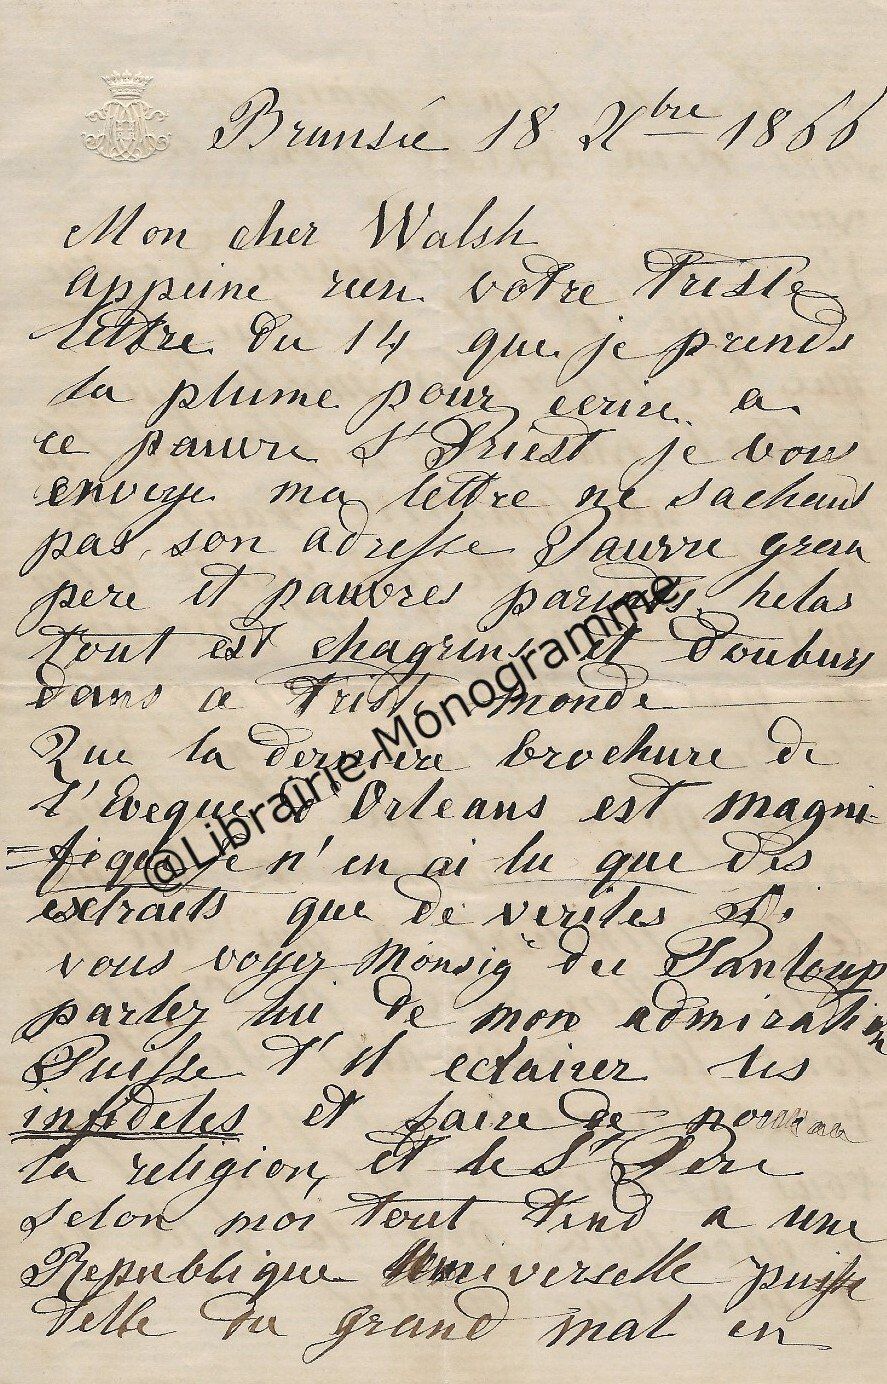 Brunsée 18 Xbre 1866
Mon cher Walsh
appeine recu votre triste
lettre du 14 que je prends
la plume pour ecrire a
ce pauvre St Priest je vous
envoye ma lettre ne sachant
pas son adresse Pauvre gran
pere et pauvres parents helas
tout est chagrins et douleurs
dans ce triste monde
Que la derniere brochure de
l'Eveque d'Orleans est magni-
=fique je n'en ai lu que des
extraits que de verites Si
vous voyez Monsigr du Panloup
parlez lui de mon admiration
Puisse t'il eclairer les
infideles et faire de nouveau
la religion, et le St Pere
selon moi tout tend a une
Republique universelle puisse
telle du grand mal en
@Librairie Monogramme